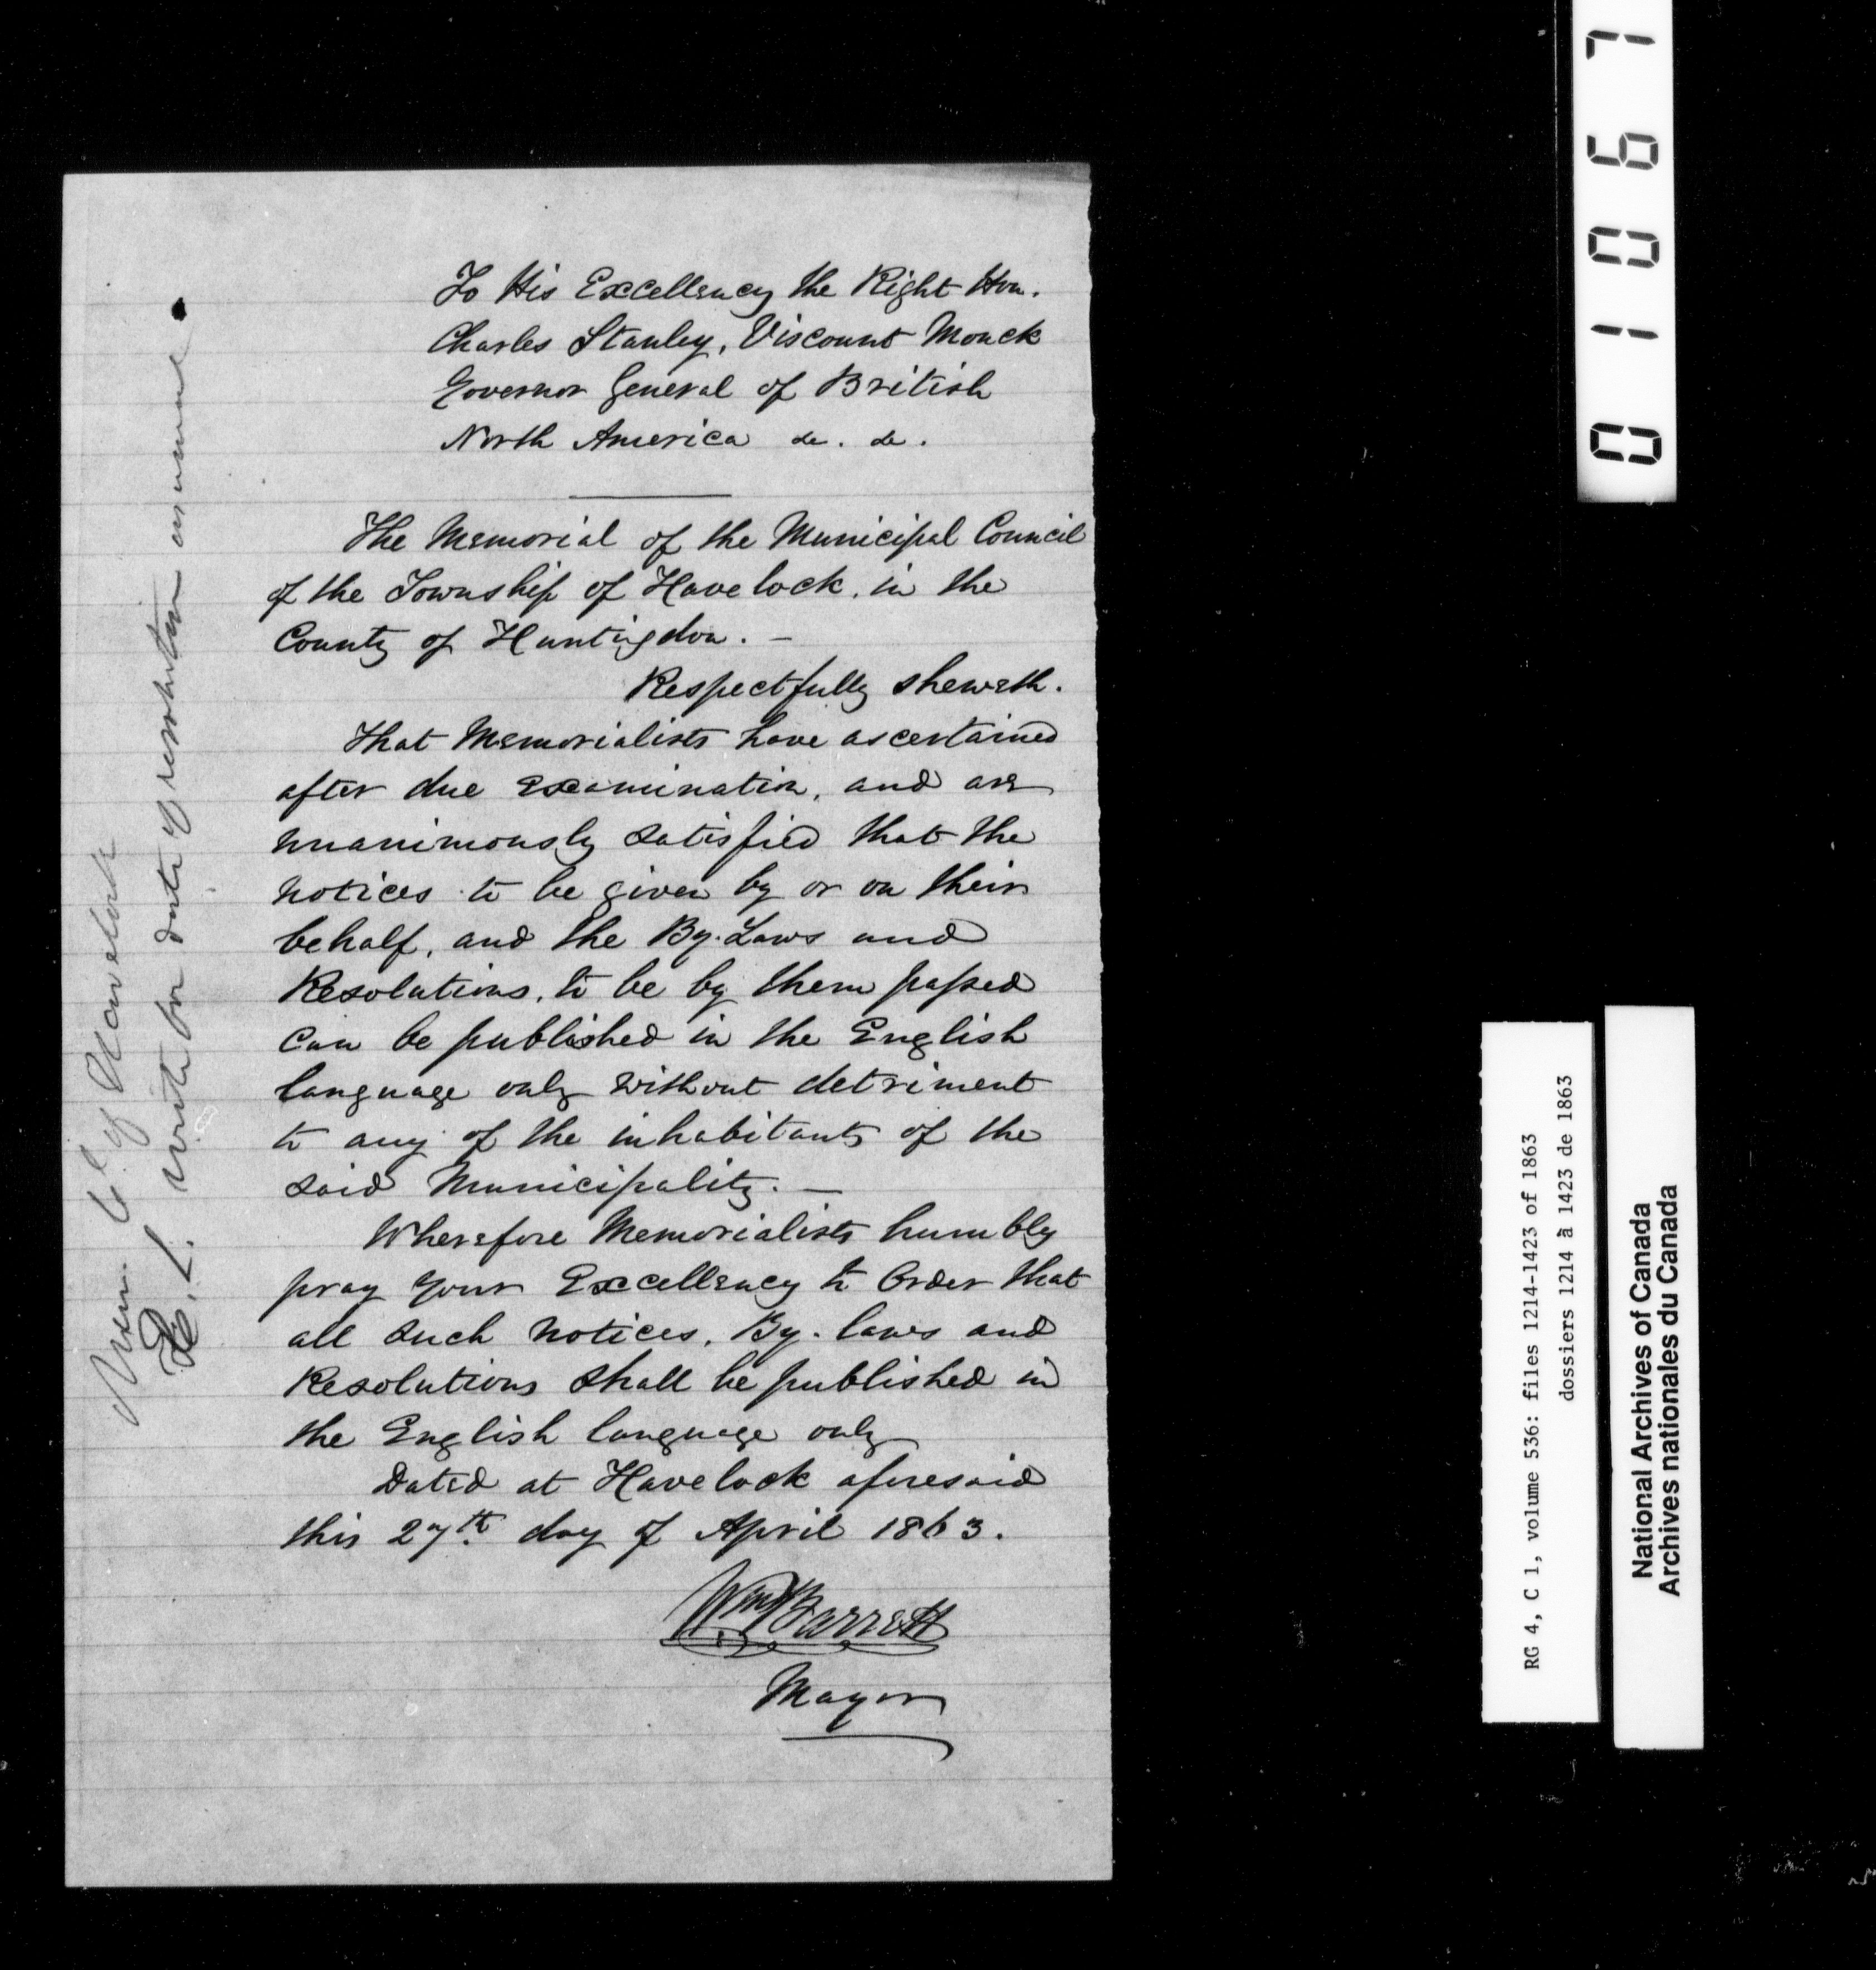 To His Excellency the Right Hon.
Charles Stanley, Viscount Monck
Governor General of British
North America &c. &c.
The Memorial of the Municipal Council
of the Township of Havelock, in the
County of Huntingdon. —
Respectfully sheweth.
That Memorialists have ascertained
after due Examination, and are
unanimously satisfied that the
notices to be given by or on their
behalf, and the By-Laws and
Resolutions, to be by them passed
can be published in the English
language only without detriment
to any of the inhabitants of the
said Municipality. —
Wherefore Memorialists humbly
pray your Excellency to Order that
all such notices, By-laws and
Resolutions shall be published in
the English language only
Dated at Havelock aforesaid
this 27th day of April 1863.
Wm Barrett
Mayor
Mun. Cl of Havelock
E. L. write for date of resolution as usual
01067
RG 4, C 1, volume 536: files 1214-1423 of 1863
dossiers 1214 à 1423 de 1863
National Archives of Canada
Archives nationales du Canada